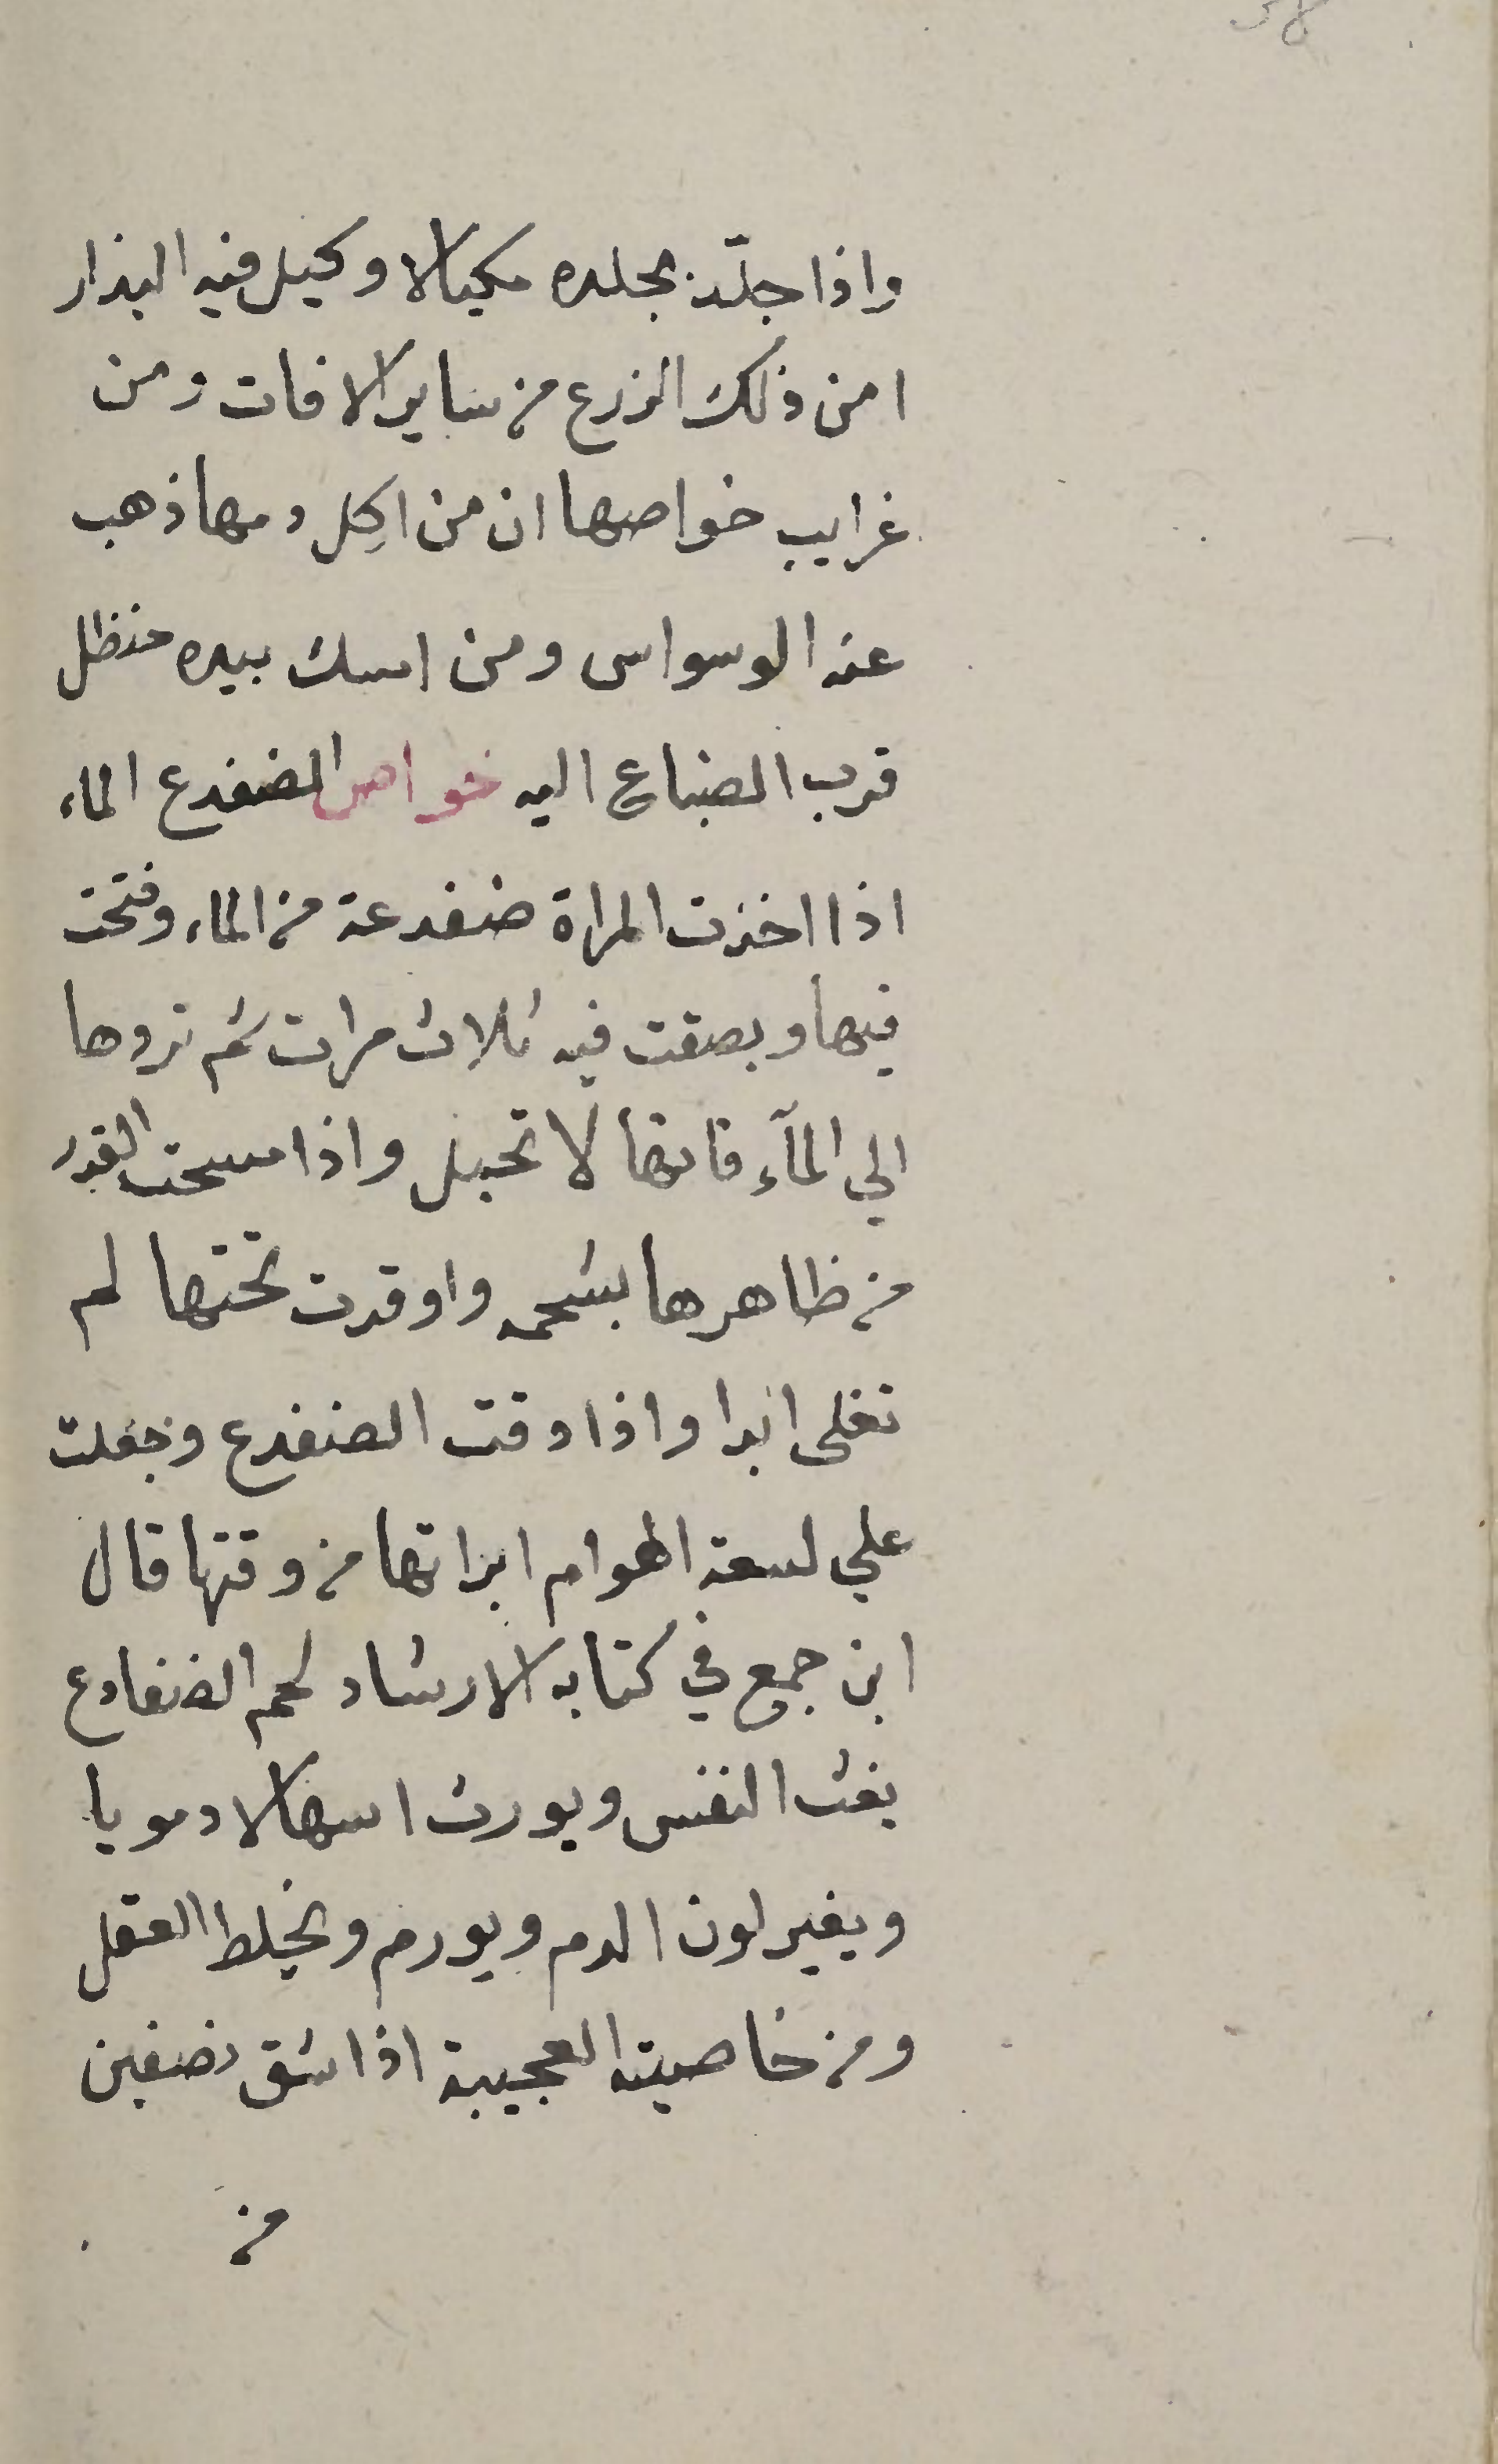 38
واذا جلّد بجلده مكيالا وكيل فيه البذار
امن ذلك الزرع من ساير الافات ومن
غرايب خواصها ان من اكل دمها ذهب
عنه الوسواس ومن امسك بيده حنظل
قرب الضباع اليه خواص الضفدع الماء
اذا اخذت المراة ضفدعة من الماء وفتحت
فيها وبصقت فيه ثلاث مرات ثم تردها
الي المآء فانها لا تحبل واذا مسحت القدر
من ظاهرها بشحمه واوقدت تحتها لم
تغلى ابدا واذا دقت الضفدع وجعلت
علي لسعة الهوام ابراتها من وقتها قال
ابن جمع في كتابه الارشاد لحم الضفادع
يغث النفس ويورث اسهالا دمويا
ويغير لون الدم ويورم ويخلط العقل
ومن خاصيته العجيبة اذا شق نصفين
من